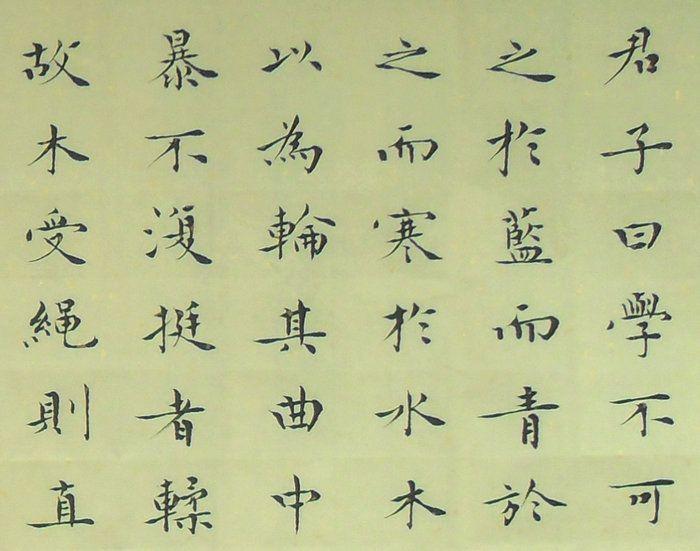 君子曰學不可
之於藍而青於
之而寒於水木
以為輪其曲中
暴不復挺者輮
故木受繩則直